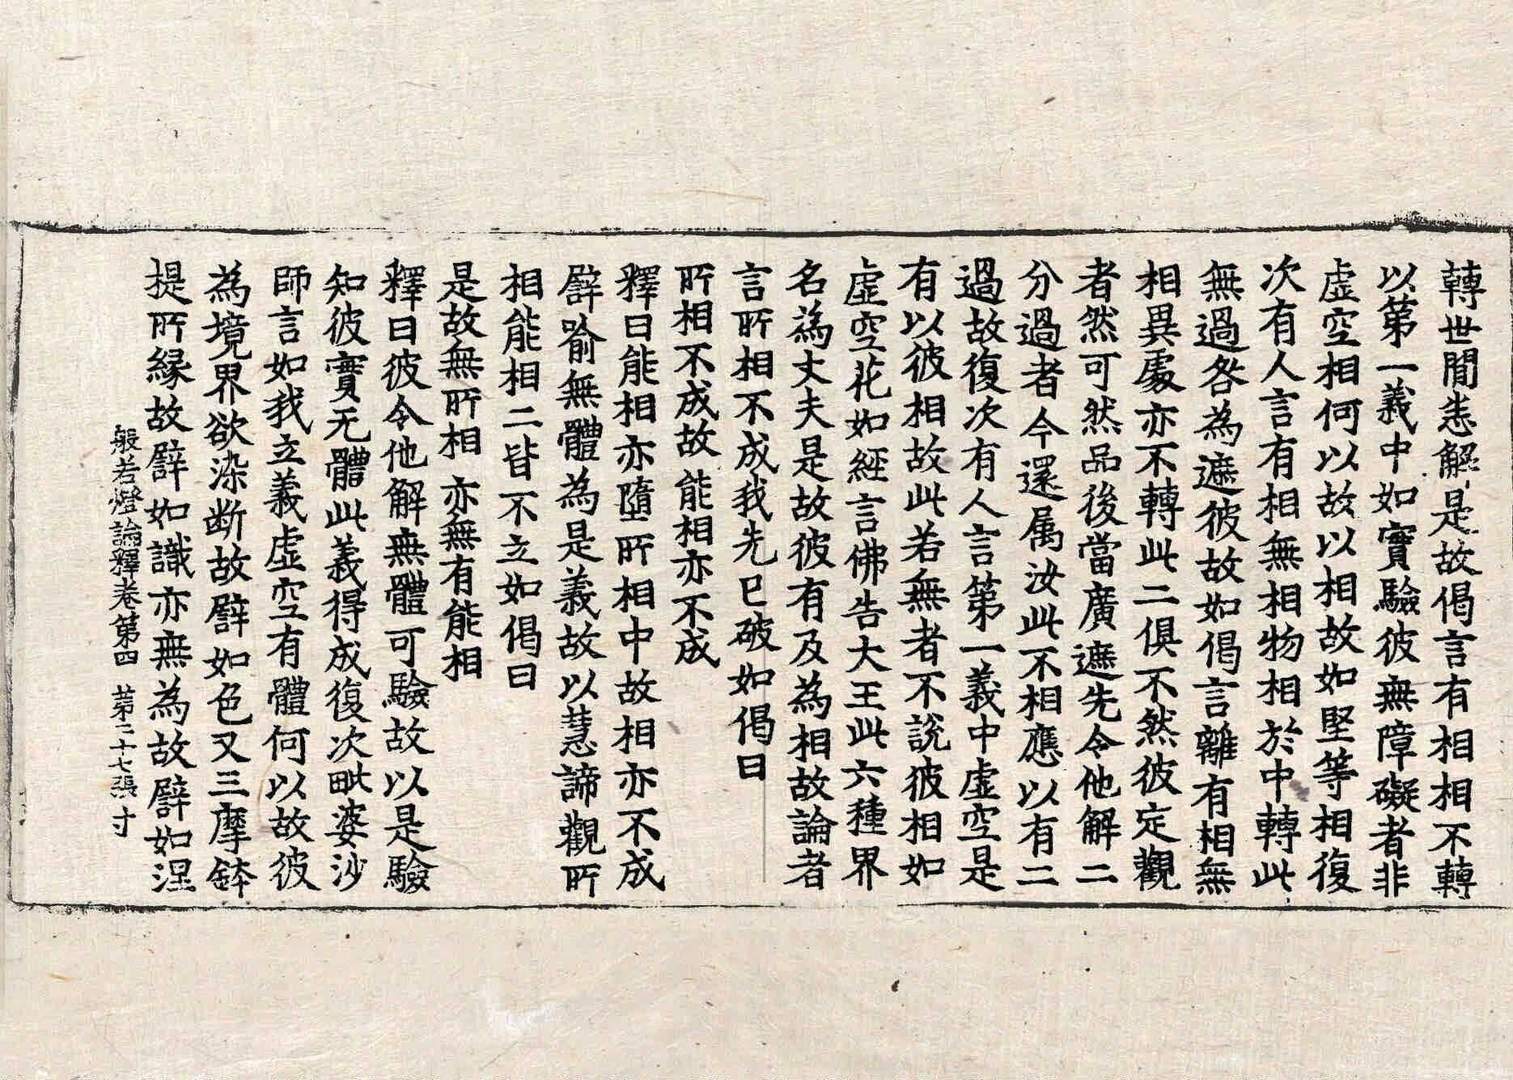 轉世閒悉解是故偈言有相相不轉
以第一義中如實驗彼無障礙者非
虛空相何以故以相故如堅等相復
次有人言有相無相物相於中轉此
無過咎為遮彼故如偈言離有相無
相異處亦不轉此二俱不然彼定觀
者然可然品後當廣遮先令他解二
分過者今還属汝此不相應以有二
過故復次有人言第一義中虛空是
有以彼相故此若無者不說彼相如
虛空花如經言佛告大王此六種界
名為丈夫是故彼有及為相故論者
言所相不成我先已破如偈曰
所相不成故 能相亦不成
釋曰能相亦墮所相中故相亦不成
譬喻無體為是義故以慧諦觀所
相能相二皆不立如偈曰
是故無所相 亦無有能相
釋曰彼令他解無體可驗故以是驗
知彼實无體此義得成復次毗婆沙
師言如我立義虛空有體何以故彼
為境界欲染断故譬如色又三摩鉢
提所緣故譬如識亦無為故譬如涅
般若燈論釋卷第四 苐二十七張 寸